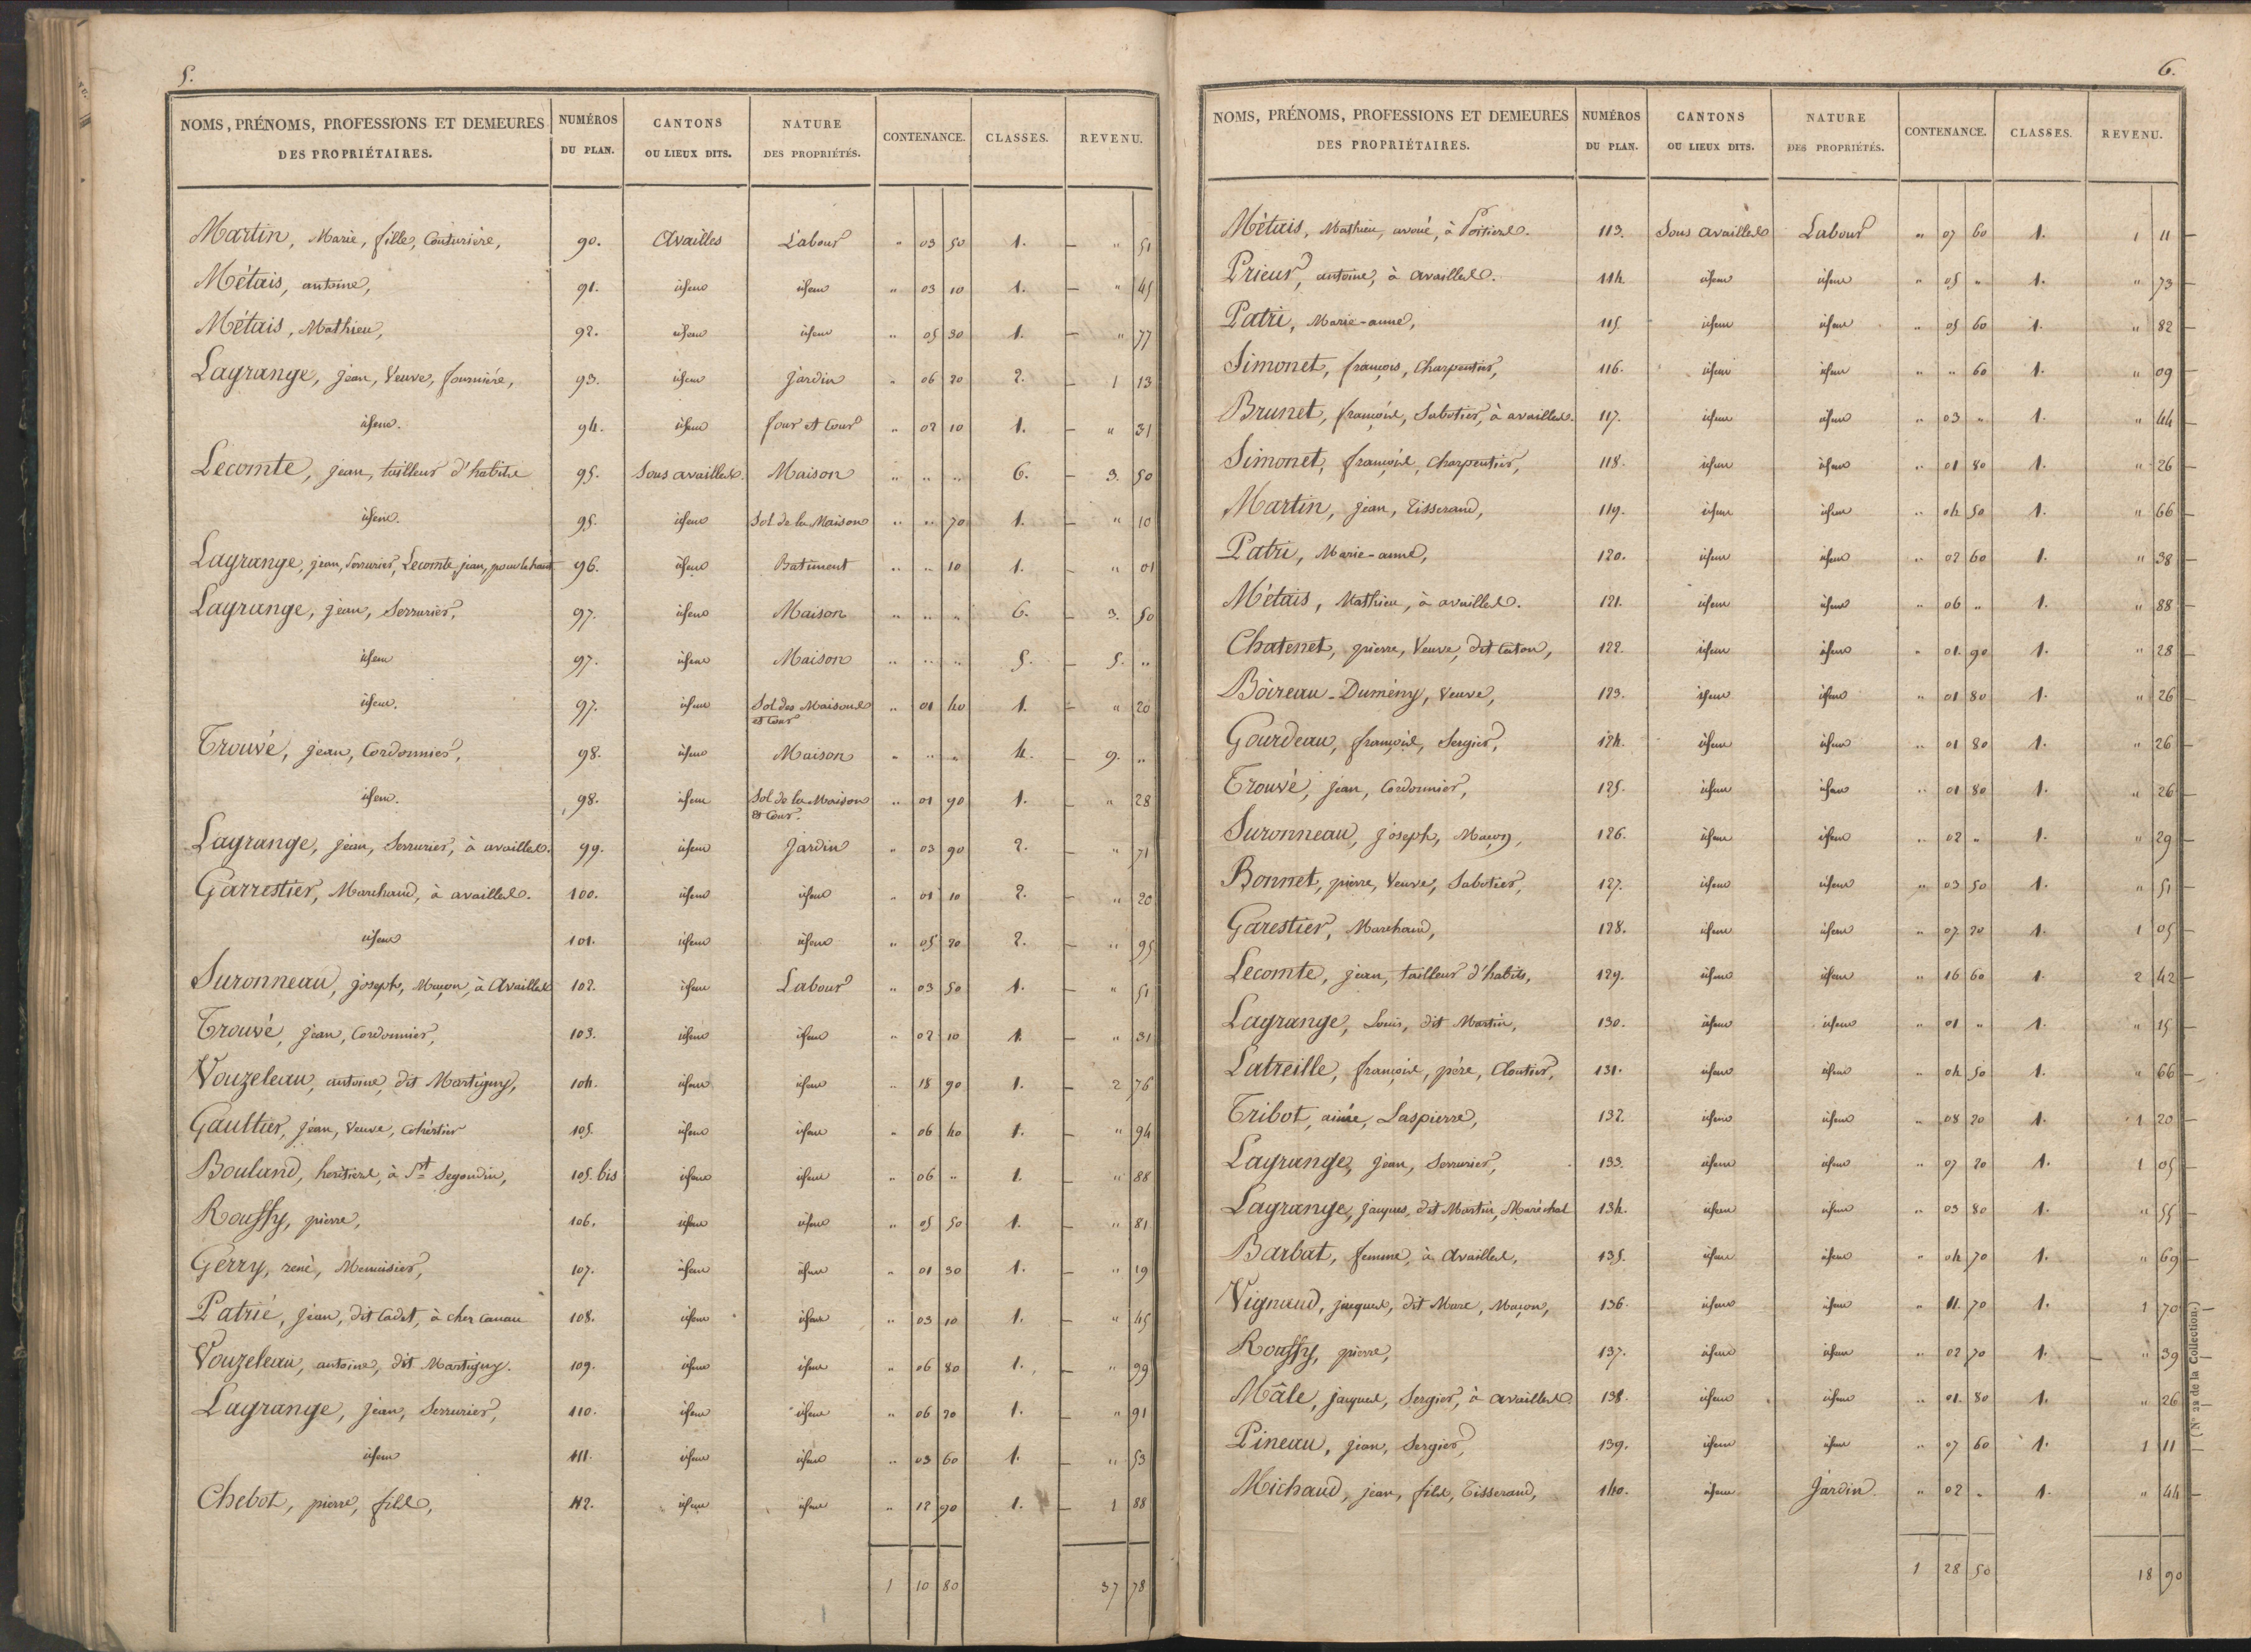 5.
NOMS, PRÉNOMS, PROFESSIONS ET DEMEURES DES PROPRIÉTAIRES. | NUMÉROS DU PLAN. | CANTONS OU LIEUX DITS. | NATURE DES PROPRIÉTÉS. | CONTENANCE. | CLASSES. | REVENU.
Martin, Marie, fille, Couturière, 90. Availles Labour " 03 50 1. — " 51
Métais, antoine, 91. idem idem " 03 10 1. — " 45
Métais, Mathieu, 92. idem idem " 05 30 1. — " 77
Lagrange, jean, Veuve, fournière, 93. idem jardin " 06 20 2. — 1 13
idem. 94. idem four et Cour " 02 10 1. — " 31
Lecomte, jean, tailleur d'habits 95. Sous availles. Maison " " " 6. — 3. 50
idem. 95. idem Sol de la Maison " " 70 1. — " 10
Lagrange, jean, Serrurier, Lecomte jean, pour le haut 96. idem Batiment " " 10 1. — " 01
Lagrange, jean, Serrurier, 97. idem Maison " " " 6. — 3. 50
idem 97. idem Maison " " " 5. — 5. "
idem. 97. idem Sol des Maisons et Cour " 01 40 1. — " 20
Trouvé, jean, Cordonnier, 98. idem Maison " " " 4. — 9. "
idem. 98. idem Sol de la Maison et Cour. " 01 90 1. — " 28
Lagrange, jean, Serrurier, à availles. 99. idem Jardin " 03 90 2. — " 71
Garrestier, Marchand, à availles. 100. idem idem " 01 10 2. — " 20
idem 101. idem idem " 05 20 2. — " 95
Suronneau, joseph, Maçon, à Availles 102. idem Labour " 03 50 1. — " 51
Trouvé, jean, Cordonnier, 103. idem idem " 02 10 1. — " 31
Vouzeleau, antoine, dit Martigny, 104. idem idem " 18 90 1. — 2 76
Gaultier, jean, Veuve, Cohértier 105. idem idem " 06 40 1. — " 94
Bouland, heritiers, à St Segondin, 105. bis idem idem " 06 " 1. — " 88
Roussy, pierre, 106. idem idem " 05 50 1. — " 81
Gerry, rené, Menuisier, 107. idem idem " 01 30 1. — " 19
Patrie, jean, dit Cadet, à chez 108. idem idem " 03 10 1. — " 45
Vouzeleau, antoine, dit Martigny. 109. idem idem " 06 80 1. — " 99
Lagrange, jean, Serrurier, 110. idem idem " 06 20 1. — " 91
idem 111. idem idem " 03 60 1. — " 53
Chebot, pierre, fils, 112. idem idem " 12 90 1. — 1 88
1 10 80 37 78
6.
NOMS, PRÉNOMS, PROFESSIONS ET DEMEURES DES PROPRIÉTAIRES. | NUMÉROS DU PLAN. | CANTONS OU LIEUX DITS. | NATURE DES PROPRIÉTÉS. | CONTENANCE. | CLASSES. | REVENU.
Métais, Mathieu, avoué, à Poitiers. 113. Sous availles Labour " 07 60 1. 1 11 —
Prieur, antoine, à availles. 114. idem idem " 05 " 1. " 73 —
Patri, Marie-anne, 115. idem idem " 05 60 1. " 82 —
Simonet, françois, Charpentier, 116. idem idem " " 60 1. " 09 —
Brunet, françois, Sabotier, à availles. 117. idem idem " 03 " 1. " 44 —
Simonet, françois, Charpentier, 118. idem idem " 01 80 1. " 26 —
Martin, jean, Tisserand, 119. idem idem " 04 50 1. " 66 —
Patri, Marie-anne, 120. idem idem " 02 60 1. " 38 —
Métais, Mathieu, à availles. 121. idem idem " 06 " 1. " 88 —
Chatenet, pierre, Veuve, dit Caton, 122. idem idem " 01 90 1. " 28 —
Boireau-Dumény, Veuve, 123. idem idem " 01 80 1. " 26 —
Gourdeau, françois, Sergier, 124. idem idem " 01 80 1. " 26 —
Trouvé, jean, Cordonnier, 125. idem idem " 01 80 1. " 26 —
Suronneau, joseph, Maçon, 126. idem idem " 02 " 1. " 29 —
Bonnet, pierre, Veuve, Sabotier, 127. idem idem " 03 50 1. " 51 —
Garestier, Marchand, 128. idem idem " 07 20 1. 1 05 —
Lecomte, jean, tailleur d'habits, 129. idem idem " 16 60 1. 2 42 —
Lagrange, Louis, dit Martin, 130. idem idem " 01 " 1. " 15 —
Latreille, françois, père, Cloutier, 131. idem idem " 04 50 1. " 66 —
Tribot, aimée, Laspierre, 132. idem idem " 08 20 1. 1 20 —
Lagrange, jean, Serrurier, 133. idem idem " 07 20 1. 1 05 —
Lagrange, jacques, dit Martin, Maréchal 134. idem idem " 03 80 1. " 55 —
Barbat, femme, à Availles, 135. idem idem " 04 70 1. " 69 —
Vignaud, jacques, dit Marc, Maçon, 136. idem idem " 11. 70 1. 1 70 —
Roussy, pierre, 137. idem idem " 02 70 1. — " 39 —
Mâle, jacques, Sergier, à availles. 138. idem idem " 01. 80 1. " 26 —
Pineau, jean, Sergier, 139. idem idem " 07 60 1. 1 11 —
Michaud, jean, fils, Tisserand, 140. idem Jardin. " 02 " 1. " 44 —
1 28 50 18 90
(N° 22 de la Collection.)